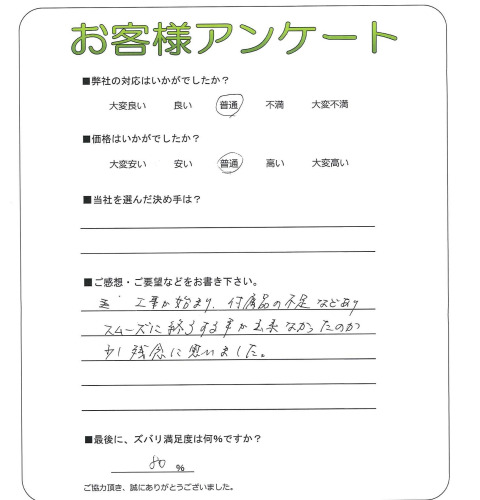 お客様アンケート
■弊社の対応はいかがでしたか？
大変良い 良い 普通 不満 大変不満
■価格はいかがでしたか？
大変安い 安い 普通 高い 大変高い
■当社を選んだ決め手は？
■ご感想・ご要望などをお書き下さい。
工事が始まり、付属品の不足などあり
スムーズに終了する事が出来なかったのが
少し残念に思いました。
■最後に、ズバリ満足度は何%ですか？
80 %
ご協力頂き、誠にありがとうございました。